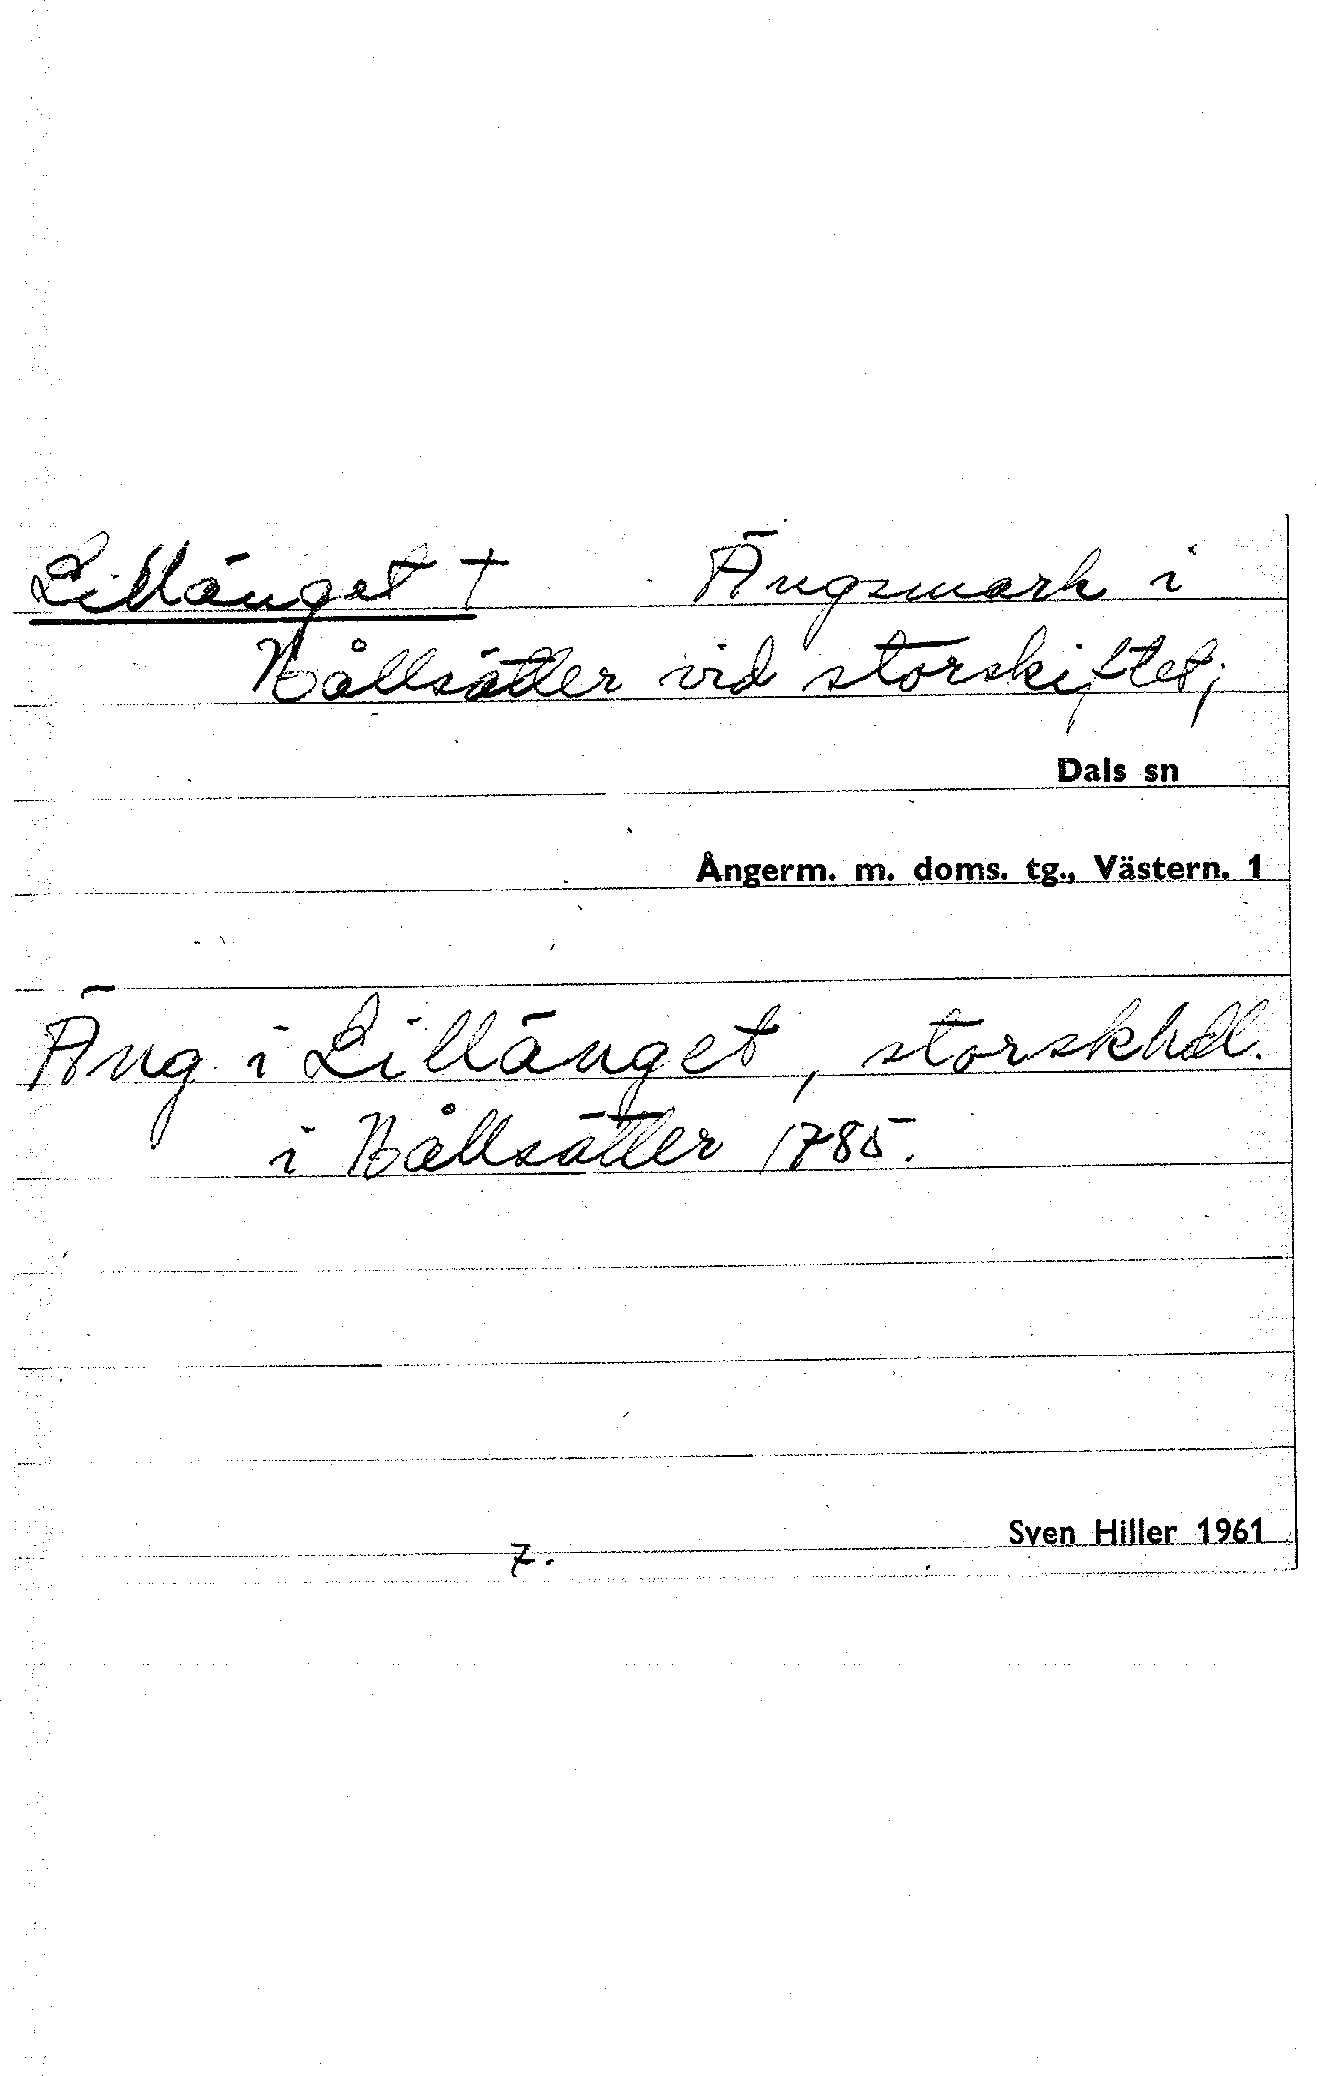 Lillänget † Ängsmark i
Bållsätter vid storskiftet;
Dals sn
Ångerm. m. doms. tg., Västern. 1
Äng i Lillänget, storskhdl.
i Bållsätter 1785.
Sven Hiller 1961
7.